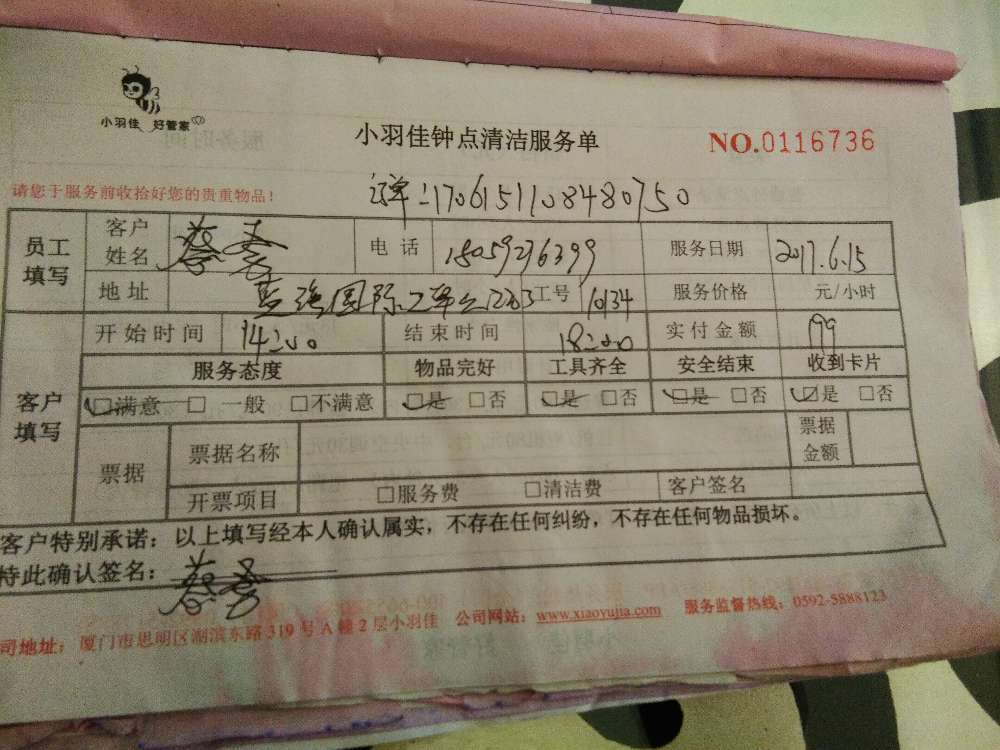 小羽佳 好管家
小羽佳钟点清洁服务单
NO.0116736
请您于服务前收拾好您的贵重物品!
订单:1706151108480750
员工填写 客户姓名 蔡 电话 18059236399 服务日期 2017.6.15
地址 国际 1203 工号 10134 服务价格 元/小时
客户填写 开始时间 14:00 结束时间 18:00 实付金额 199
服务态度 物品完好 工具齐全 安全结束 收到卡片
☑满意 □一般 □不满意 ☑是 □否 ☑是 □否 ☑是 □否 ☑是 □否
票据 票据名称 票据金额
开票项目 □服务费 □清洁费 客户签名
客户特别承诺：以上填写经本人确认属实，不存在任何纠纷，不存在任何物品损坏。
特此确认签名：蔡
司地址：厦门市思明区湖滨东路319号A幢2层小羽佳 公司网站：www.xiaoyujia.com 服务监督热线：0592-5888123